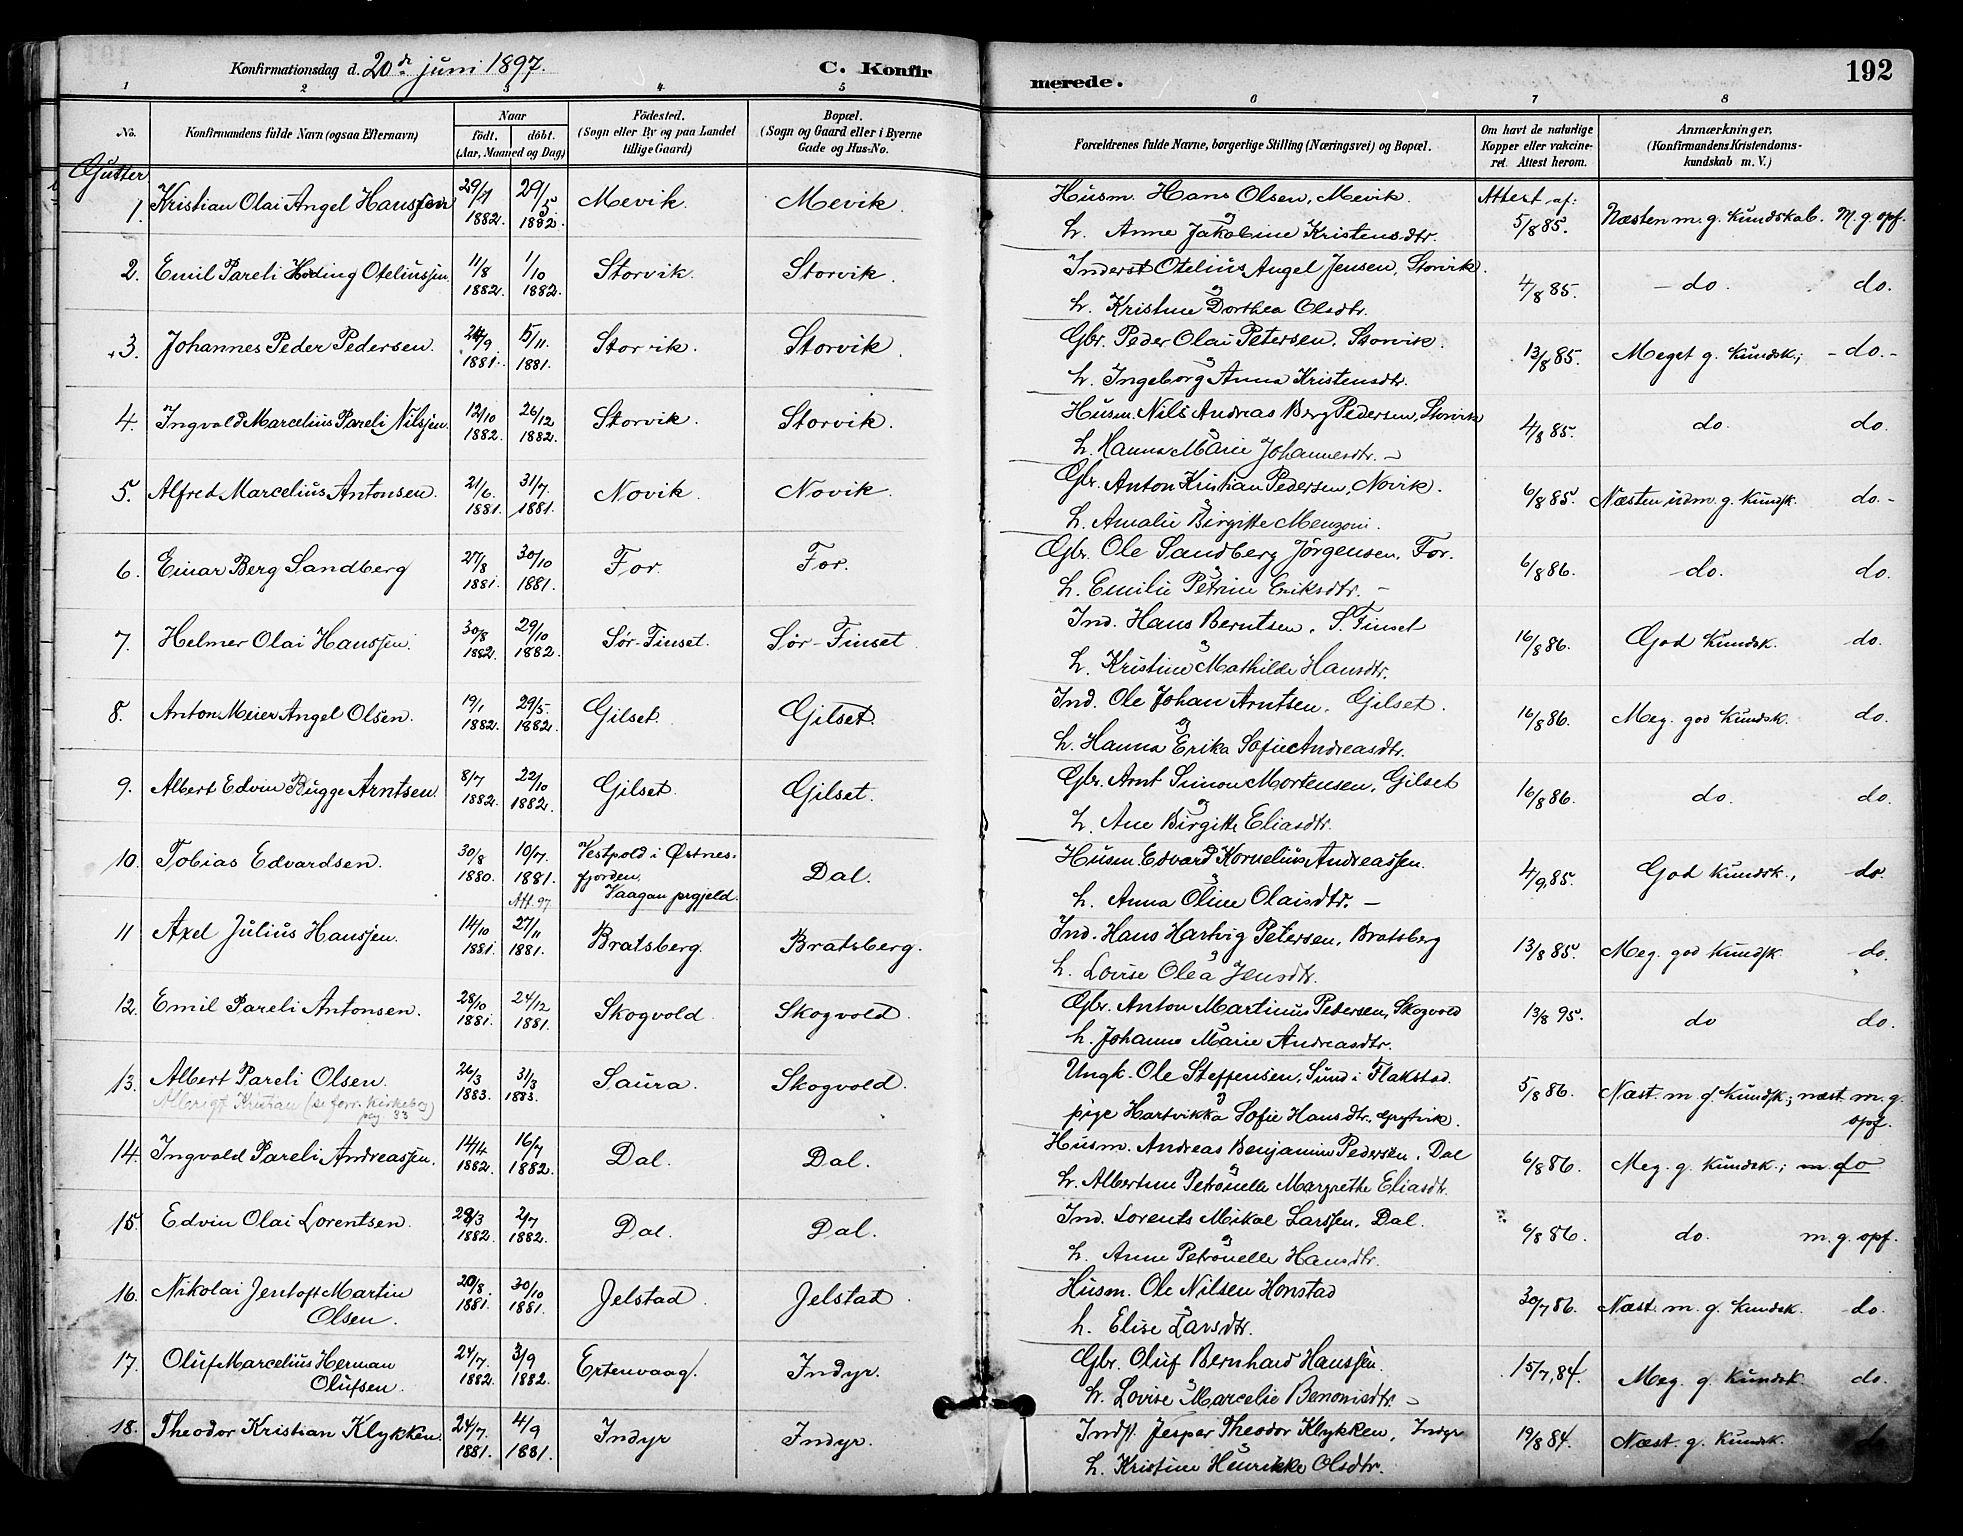 Konfirmationsdag d. 20de juni 1897. C. Konfirmerede. 192
1 2 3 4 5 6 7 8
No. Konfirmandens fulde Navn (ogsaa Efternavn) Naar født, døbt. (Aar, Maaned og Dag) Födested. (Sogn eller By og paa Landet tillige Gaard) Bopæl. (Sogn og Gaard eller i Byerne Gade og Hus-No. Forældrenes fulde Navne, borgerlige Stilling (Næringsvei) og Bopæl. Om havt de naturlige Kopper eller vakcineret. Attest herom. Anmærkninger. (Konfirmandens Kristendomskundskab m. V.)
Gutter
1. Kristian Olai Angel Hanssen 29/1 1882. 29/5 1882. Mevik. Mevik. Husm. Hans Olsen, Mevik. Attest af: 5/8 85. Næsten m. g. Kundskab. M. g. opf.
og
h. Anne Jakobine Kristensdtr.
2. Emil Pareli Hoding Oteliussen 11/8 1882. 1/10 1882. Storvik. Storvik. Inderst Otelius Angel Jensen, Storvik. 4/8 85. do. do.
og
h. Kristine Dorthea Olsdtr.
3. Johannes Peder Pedersen. 24/9 1881. 5/11. 1881. Storvik. Storvik. Gbr. Peder Olai Petersen, Storvik. 13/8 85. Meget g. Kundsk; - do. -
og
h. Ingeborg Anna Kristensdtr.
4. Ingvald Marcelius Pareli Nilsen. 12/10 1882. 26/12 1882. Storvik. Storvik. Husm. Nils Andreas Berg Pedersen, Storvik 4/8 85. do. do.
og
h. Hanna Marie Johannesdtr. -
5. Alfred Marcelius Antonsen. 21/6. 1881. 31/7. 1881. Novik. Novik. Gbr. Anton Kristian Pedersen, Novik. 6/8 85. Næsten udm. g. Kundsk. do. -
og
h. Amalie Birgitte Menzoni.
6. Einar Berg Sandberg 27/8 1881. 30/10 1881. For. For. Gbr. Ole Sandberg Jörgensen, For. 6/8 86. do. do.
og
h. Emilie Petrine Eriksdtr. -
7. Helmer Olai Hanssen. 30/8 1882. 29/10 1882. Sør-Finset. Sør-Finset. Ind. Hans Berntsen, S. Finset 16/8 86. God Kundsk. do.
og
h. Kristine Mathilde Hansdtr.
8. Anton Meier Angel Olsen. 19/1 1882. 29/5. 1882. Gilset. Gilset. Ind. Ole Johan Arntsen, Gilset. 16/8 86. Meg. god Kundsk. do.
og
h. Hanna Erika Sofie Andreasdtr.
9. Albert Edvin Bugge Arntsen. 8/7 1882. 22/10 1882. Gilset. Gilset. Gbr. Arnt Simon Mortensen, Gilset 16/8 86. do. do.
og
h. Ane Birgitte Eliasdtr.
10. Tobias Edvardsen. 30/8 1880. 10/7. 1881. Att. 97. Vestpold i Østnesfjorden, Vaagan prgjeld. Dal. Husm. Edvard Kornelius Andreassen. 4/9 85. God Kundsk., do.
og
h. Anna Oline Olaisdtr. -
11 Axel Julius Hanssen. 14/10 1881. 27/11 1881. Bratsberg. Bratsberg. Ind. Hans Hartvig Petersen, Bratsberg 13/8 85. Meg. god Kundsk. do.
og
h. Lovise Olea Jensdtr.
12. Emil Pareli Antonsen. 28/10 1881. 24/12 1881. Skogvold. Skogvold. Gbr. Anton Martinus Pedersen, Skogvold 13/8 95. do do.
og
h. Johanne Marie Andreasdtr.
13. Albert Pareli Olsen. 26/3 1883. 31/3 1883. Saura. Skogvold. Ungk. Ole Steffensen, Sund i Flakstad. 5/8 86. Næst. m. g. Kundsk; næst m. g. opf.
Albrigt Kristian (se forr. kirkebog pag 33) og
pige Hartvikka Sofie Hansdtr.
14. Ingvald Pareli Andreassen. 14/4 1882. 16/7 1882. Dal. Dal. Husm. Andreas Benjamin Pedersen, Dal 6/8 86. Meg. g. Kundsk.; do
og
h. Albertine Petronelle Margrethe Eliasdtr.
15. Edvin Olai Lorentsen. 29/3 1882. 2/7 1882. Dal. Dal. Ind. Lorents Mikal Larssen, Dal. 6/8 86. do. m. g. opf.
og
h. Anne Petronelle Hansdtr.
16. Nikolai Jentoft Martin Olsen. 20/8. 1881. 30/10 1881. Jelstad. Jelstad. Husm. Ole Nilsen Honstad 30/7 86. Næst. m. g. Kundsk. do.
h. Elise Larsdtr.
17. Oluf Marcelius Herman Olufsen. 24/7. 1882. 3/9 1882. Ertenvaag Indyr. Gbr. Oluf Bernhard Hanssen. 15/7, 84. Meg. g. Kundsk. do.
og
h. Lovise Marcelie Benonisdtr. -
18. Theodor Kristian Klykken. 24/7. 1881. 4/9 1881. Indyr Indyr. Indst. Jesper Theodor Klykken, Indyr 19/8 84. Næst. g. Kundsk.
h. Kristine Henrikke Olsdtr.